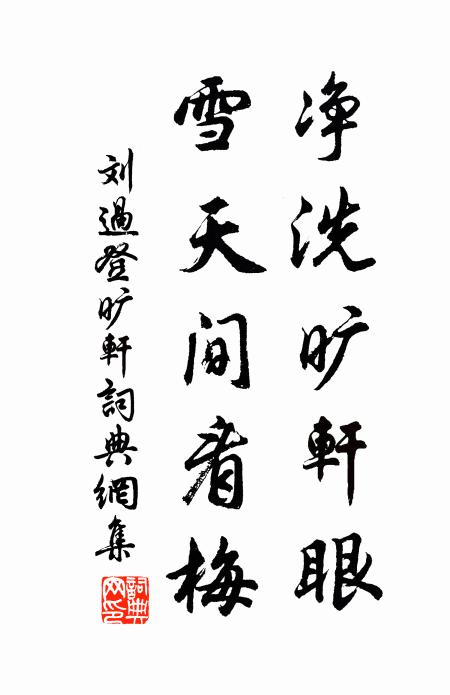 净洗旷軒眼
雪天间看梅
刘過登旷軒詞典網集
詞典網印